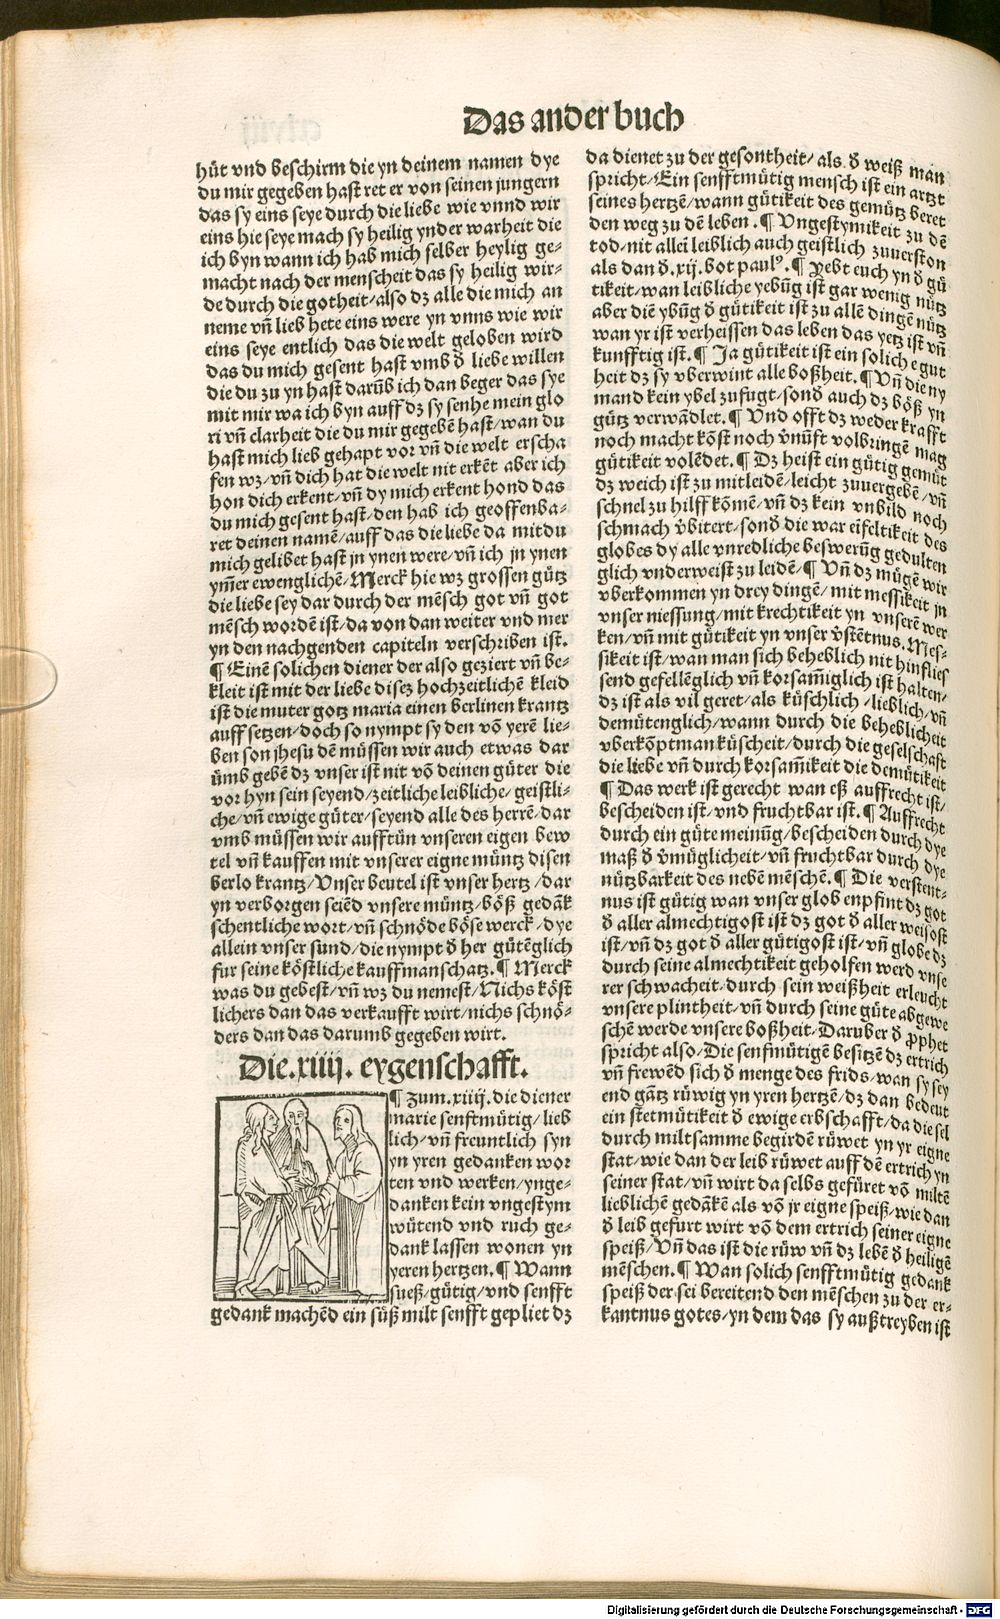 Das ander buch
hüt vnd beschirm die yn deinem namen dye
du mir gegeben hast ret er von seinen jungern
das sy eins seye durch die liebe wie vnnd wir
eins hie seye mach sy heilig ynder warheit die
ich byn wann ich hab mich selber heylig ge⸗
macht nach der menscheit das sy heilig wir⸗
de durch die gotheit/also dz alle die mich an
neme vñ lieb hete eins were yn vnns wie wir
eins seye entlich das die welt geloben wird
das du mich gesent hast vmb d̕ liebe willen
die du zu yn hast darūb ich dan beger das sye
mit mir wa ich byn auff dz sy senhe mein glo
ri vñ clarheit die du mir gegebē hast/wan du
hast mich lieb gehapt vor vñ die welt erscha
fen wz/vñ dich hat die welt nit erkēt aber ich
hon dich erkent/vñ dy mich erkent hond das
du mich gesent hast/den hab ich geoffenba⸗
ret deinen namē/auff das die liebe da mitdu
mich gelibet hast jn ynen were/vñ ich jn ynen
ym̄er ewenglichē/Merck hie wz grossen gütz
die liebe sey dar durch der mēsch got vñ got
mēsch wordē ist/da von dan weiter vnd mer
yn den nachgenden capiteln verschriben ist.
¶ Einē solichen diener der also geziert vñ be⸗
kleit ist mit der liebe disez hochzeitlichē kleid
ist die muter gotz maria einen berlinen krantz
auff setzen/doch so nympt sy den vō yerē lie⸗
ben son jhesu dē müssen wir auch etwas dar
ümb gebē dz vnser ist nit vō deinen güter die
vor hyn sein seyend/zeitliche leibliche/geistli⸗
che/vñ ewige güter/seyend alle des herrē/dar
vmb müssen wir aufftün vnseren eigen bew
tel vñ kauffen mit vnserer eigne müntz disen
berlo krantz/Vnser beutel ist vnser hertz/dar
yn verborgen seiēd vnsere müntz/böß gedāk
schentliche wort/vñ schnöde böse werck/dye
allein vnser sund/die nympt d̕ her gütēglich
fur seine köstliche kauffmanschatz.¶ Merck
was du gebest/vñ wz du nemest/Nichs köst
lichers dan das verkaufft wirt/nichs schnö⸗
ders dan das darumb gegeben wirt.
Die.xiiij. eygenschafft.
¶ Zum.xiiij.die diener
marie senftmütig/lieb
lich/vñ freuntlich syn
yn yren gedanken wor
ten vnd werken/ynge⸗
danken kein vngestym
wütend vnd ruch ge⸗
dank lassen wonen yn
yeren hertzen.¶ Wann
sueß/gütig/vnd senfft
gedank machēd ein süß milt senfft gepliet dz
da dienet zu der gesontheit/als d̕ weiß man
spricht/Ein senfftmütig mensch ist ein artzt
seines hertzē/wann gütikeit des gemütz beret
den weg zu dē leben.¶ Vngestymikeit zu dē
tod/nit allei leiblich auch geistlich zuuerston
als dan d̕.xij.bot paulꝰ.¶ Yebt euch yn d̕ gü
tikeit/wan leibliche yebūg ist gar wenig nütz
aber diē ybūg d̕ gütikeit ist zu allē dingē nütz
wan yr ist verheissen das leben das yetz ist vñ
kunfftig ist.¶ Ja gütikeit ist ein soliche gut
heit dz sy vberwint alle boßheit.¶ Vñ die ny
mand kein ybel zufugt/sond̕ auch dz böß yn
gütz verwādlet.¶ Vnd offt dz weder krafft
noch macht kōst noch v̕nūft volbringē mag
gütikeit volēdet.¶ Dz heist ein gütig gemüt
dz weich ist zu mitleidē/leicht zuuergebē/vñ
schnel zu hilff kōmē/vñ dz kein vnbild noch
schmach v̕bitert/sond̕ die war eifeltikeit des
globes dy alle vnredliche beswerūg gedulten
glich vnderweist zu leidē/¶ Vñ dz mügē wir
vberkommen yn drey dingē/mit messikeit jn
vnser niessung/mit krechtikeit yn vnserē wer
ken/vñ mit gütikeit yn vnser v̕stētnus.Mes⸗
sikeit ist/wan man sich beheblich nit hinflies
send gesellēglich vñ korsam̄iglich ist halten/
dz ist als vil geret/als küschlich/lieblich/vñ
demütenglich/wann durch die beheblicheit
vberkōptman küscheit/durch die geselschaft
die liebe vñ durch korsam̄ikeit die demütikeit
¶ Das werk ist gerecht wan eß auffrecht ist/
bescheiden ist/vnd fruchtbar ist.¶ Auffrecht
durch ein güte meinūg/bescheiden durch dye
maß d̕ v̕müglicheit/vñ fruchtbar durch dye
nützbarkeit des nebē mēschē.¶ Die verstent⸗
nus ist gütig wan vnser glob enpfint dz got
d̕ aller almechtigost ist dz got d̕ aller weisost
ist/vñ dz got d̕ aller gütigost ist/vñ globe dz
durch seine almechtikeit geholfen werd vnse
rer schwacheit/durch sein weißheit erleucht
vnsere plintheit/vñ durch seine güte abgewe
schē werde vnsere boßheit/Daruber d̕ prophet
spricht also/Die senfmütigē besitzē dz ertrich
vñ frewēd sich d̕ menge des frids/wan sy sey
end gātz rüwig yn yren hertzē/dz dan bedeut
ein stetmütikeit d̕ ewige erbschafft/da die sel
durch miltsamme begirdē rüwet yn yr eigne
stat/wie dan der leib rüwet auff dē ertrich yn
seiner stat/vñ wirt da selbs gefüret vō miltē
lieblichē gedākē als vō jr eigne speiß/wie dan
d̕ leib gefurt wirt vō dem ertrich seiner eigne
speiß/Vñ das ist die rüw vñ dz lebē d̕ heiligē
mēschen.¶ Wan solich senfftmütig gedank
speiß der sei bereitend den mēschen zu der er⸗
kantnus gotes/yn dem das sy außtreyben ist
Digitalisierung gefördert durch die Deutsche Forschungsgemeinschaft - DFG